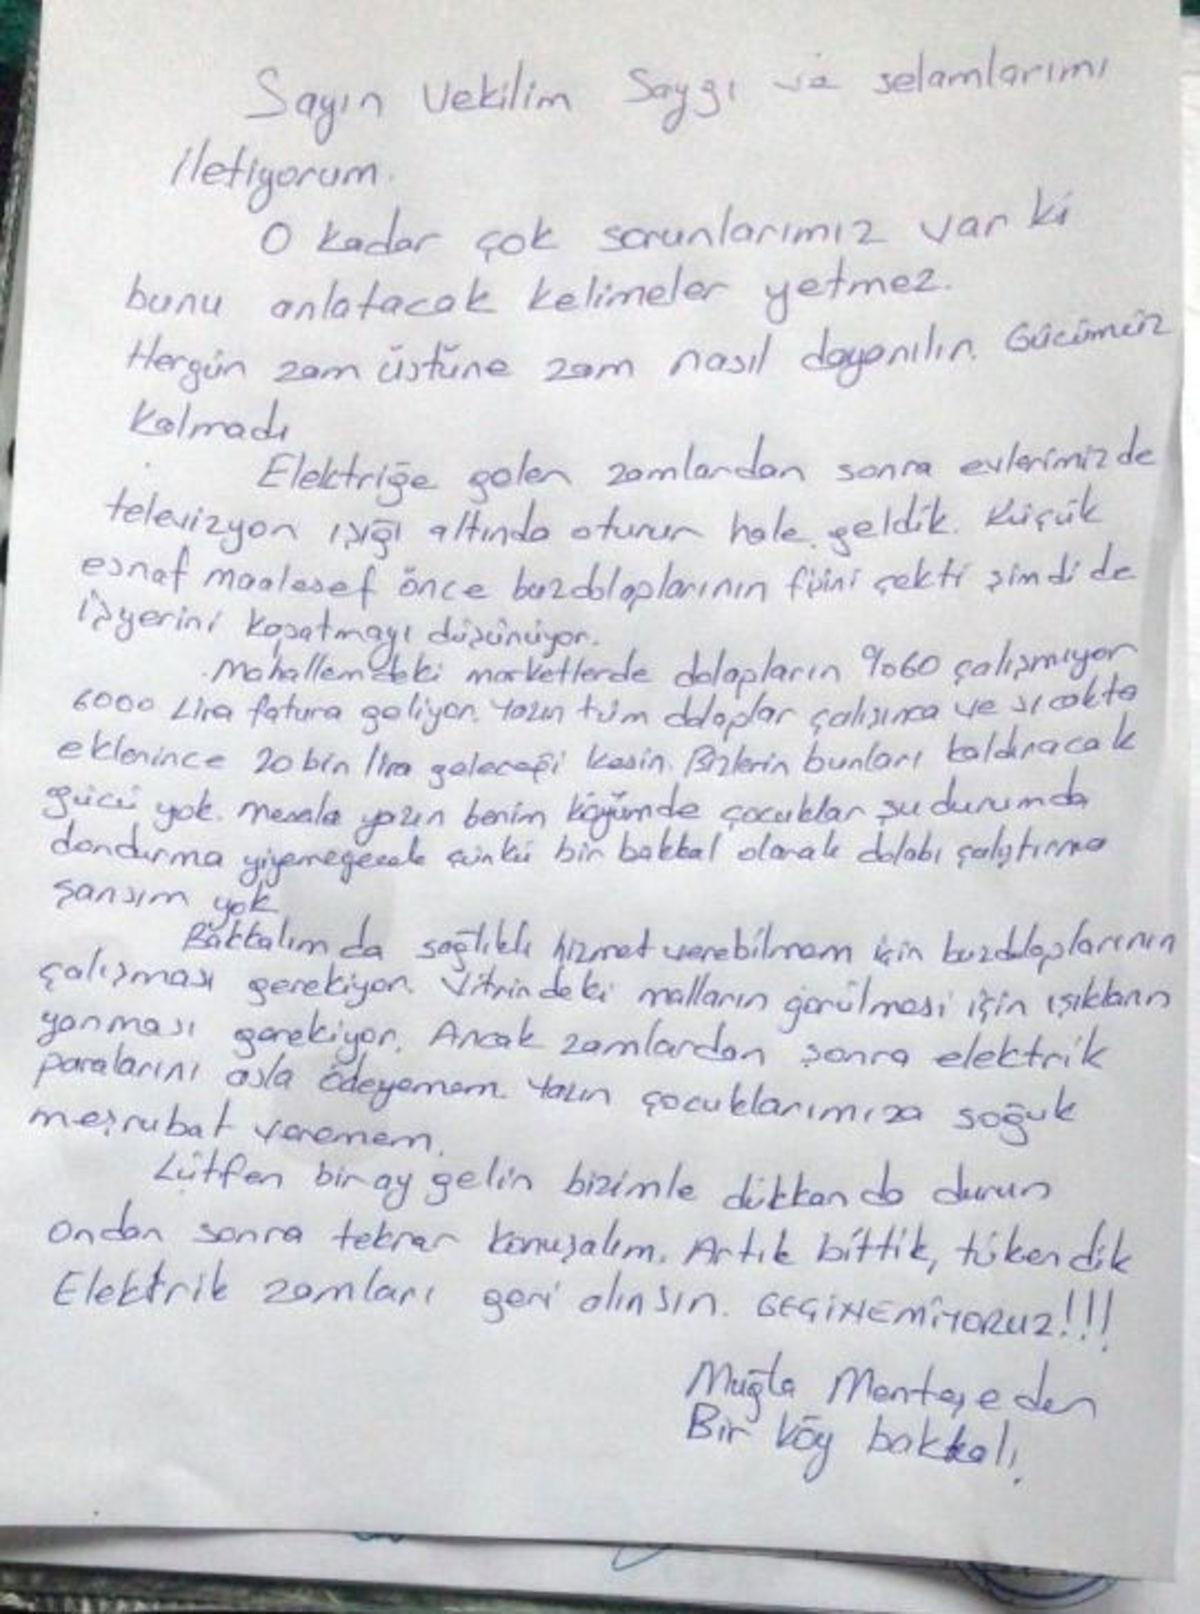 Sayın Vekilim Saygı ve selamlarımı
iletiyorum.
O kadar çok sorunlarımız var ki
bunu anlatacak kelimeler yetmez.
Hergün zam üstüne zam nasıl dayanılın. Gücümüz
kalmadı
Elektriğe gelen zamlardan sonra evlerimizde
televizyon ışığı altında oturur hale geldik. Küçük
esnaf maalesef önce buzdolaplarının fişini çekti şimdi de
işyerini kapatmayı düşünüyor.
Mahallemdeki marketlerde dolapların %60 çalışmıyor
6000 Lira fatura geliyor. Yazın tüm dolaplar çalışınca ve sıcakta
eklenince 20 bin lira geleceği kesin. Bizlerin bunları kaldıracak
gücü yok. Mesela yazın benim köyümde çocuklar şu durumda
dondurma yiyemeyecek çünkü bir bakkal olarak dolabı çalıştırma
şansım yok
Bakkalım da sağlıklı hizmet verebilmem için buzdolaplarının
çalışması gerekiyor. Vitrindeki malların görülmesi için ışıkların
yanması gerekiyor. Ancak zamlardan sonra elektrik
paralarını asla ödeyemem. Yazın çocuklarımıza soğuk
meşrubat veremem.
Lütfen bir ay gelin bizimle dükkanda durun
ondan sonra tekrar konuşalım. Artık bittik, tükendik
Elektrik zamları geri alınsın. GEÇİNEMİYORUZ!!!
Muğla Menteşeden
Bir köy bakkalı.